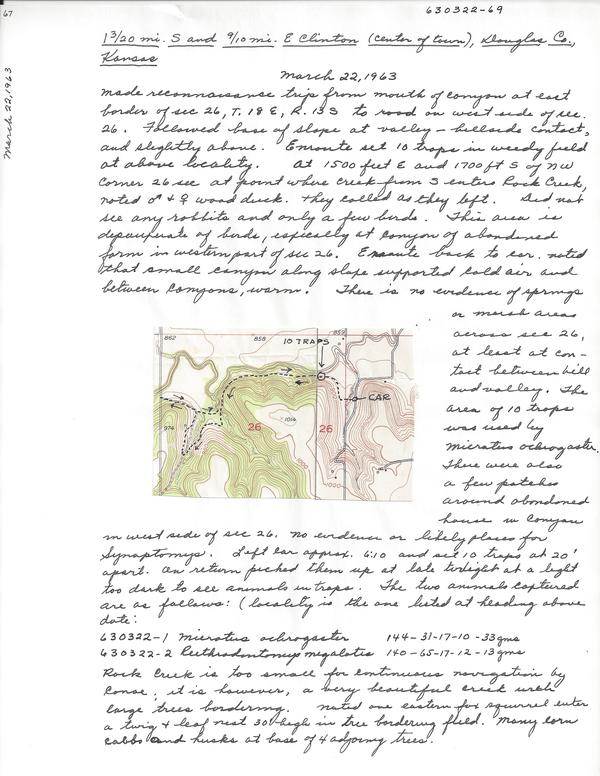 67
630322-69
March 22, 1963
1 3/20 mi. S and 9/10 mi. E Clinton (center of town), Douglas Co.,
Kansas
March 22, 1963
Made reconnaissance trip from mouth of canyon at east
border of sec 26, T. 18 E, R. 13 S to road on west side of sec.
26. Followed base of slope at valley-hillside contact,
and slightly above. Enroute set 10 traps in weedy field
at above locality. At 1500 feet E and 1700 ft S of NW
corner 26 sec at point where creek from S enters Rock Creek,
noted ♂ + ♀ wood duck. They called as they left. Did not
see any rabbits and only a few birds. This area is
depauperate of birds, espically at canyon of abandoned
farm in western part of sec 26. Enroute back to car. noted
that small canyon along slope supported cold air and
between canyons, warm. There is no evidence of springs
or marsh areas
across sec 26,
at least at con-
tact between hill
and valley. The
area of 10 traps
was used by
Microtus ochrogaster.
There were also
a few patches
around abandoned
house in canyon
862
858
10 TRAPS
859
CAR
974
26
1014
26
1000
on west side of sec 26. No evidence or likely places for
Synaptomys. Left car approx. 6:10 and set 10 traps at 20'
apart. On return picked them up at late twilight at a light
too dark to see animals in traps. The two animals captured
are as follows: (locality is the one listed at heading above
date:
630322-1 Microtus ochrogaster 144-31-17-10-33 gms
630322-2 Reithrodontomys megalotis 140-65-17-12-13 gms
Rock Creek is too small for continuous navigation by
Canoe; it is however, a very beautiful creek with
large trees bordering. Noted one eastern fox squirrel enter
a twig & leaf nest 30' high in tree bordering field. Many corn
cobbs and husks at base of 4 adjoing trees.